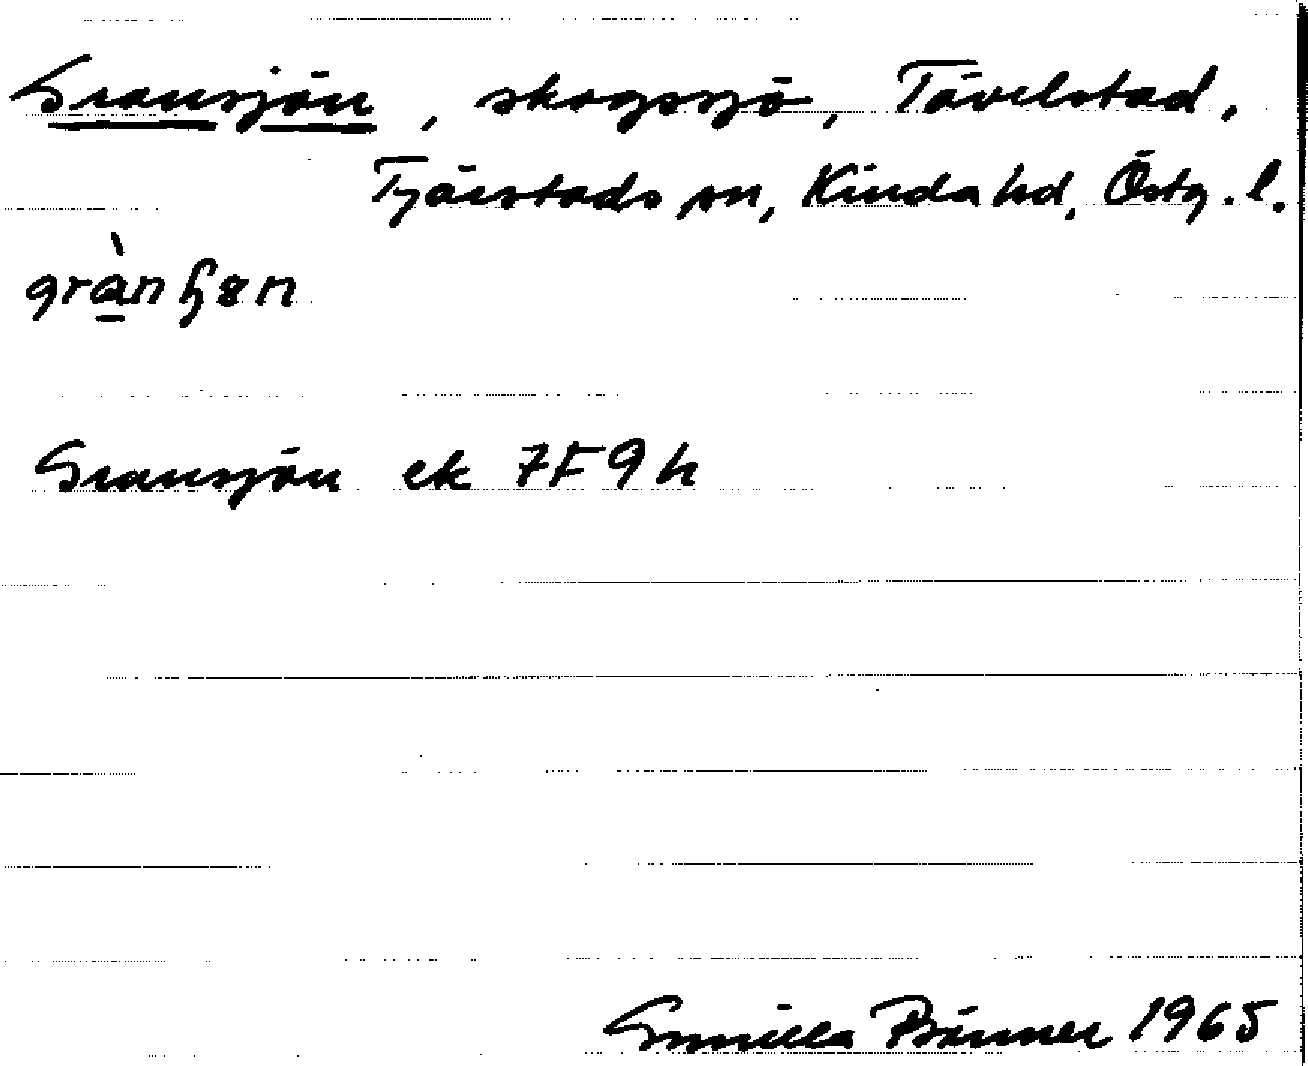 Gransjön, skogssjö, Tävelstad,
Tjärstads sn, Kinda hd, Östg. l.
Gransjön ek 7F9h
Gunilla 1965